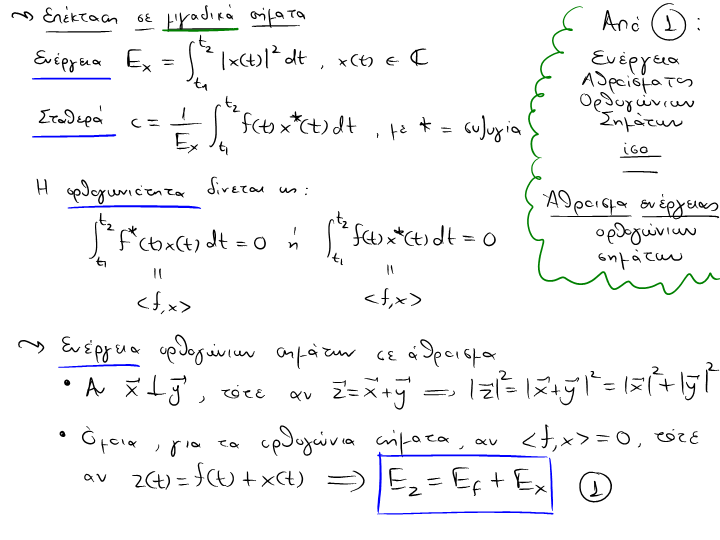 ~> Επέκταση σε μιγαδικά σήματα
Ενέργεια E_x = ∫_{t_1}^{t_2} |x(t)|² dt , x(t) ∈ ℂ
Σταθερά c = 1/E_x ∫_{t_1}^{t_2} f(t) x*(t) dt , με * = συζυγία
Η ορθογωνιότητα δίνεται ως:
∫_{t_1}^{t_2} f*(t) x(t) dt = 0 ή ∫_{t_1}^{t_2} f(t) x*(t) dt = 0
= =
<f,x> <f,x>
Από ①:
Ενέργεια
Αθροίσματος
Ορθογώνιων
Σημάτων
ίσο
Άθροισμα ενέργειας
ορθογώνιων
σημάτων
~> Ενέργεια ορθογώνιων σημάτων σε άθροισμα
• Αν x⃗ ⊥ y⃗ , τότε αν z⃗ = x⃗ + y⃗ ⟹ |z⃗|² = |x⃗ + y⃗|² = |x⃗|² + |y⃗|²
• Όμοια, για τα ορθογώνια σήματα, αν <f,x> = 0, τότε
αν z(t) = f(t) + x(t) ⟹ E_z = E_f + E_x ①